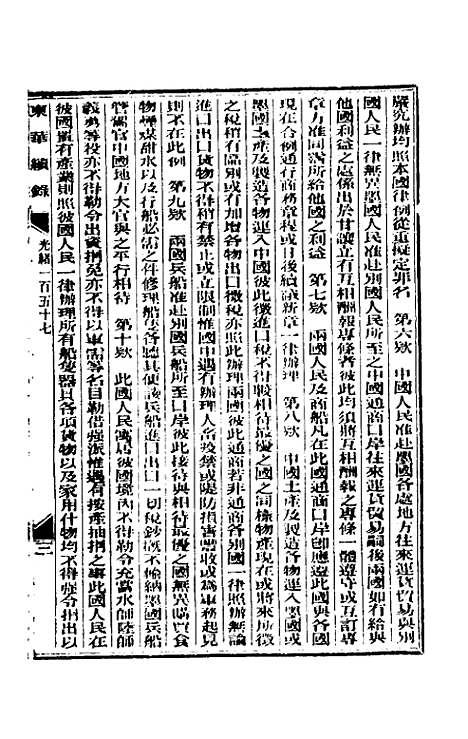 嚴究辦均照本國律例從重擬定罪名　第六欵　中國人民准赴墨國各處地方往來運貨貿易與別
國人民一律無異墨國人民亦准赴別國人民所至之中國通商口岸往來運貨貿易嗣後兩國如有給與
他國利益之處係出於甘讓立有互相酬報專條者彼此均須將互相酬報之專條一體遵守或互訂專
章方准同霑所給他國之利益　第七欵　兩國人民及商船凡在此國通商口岸卽應遵此國與各國
現在合例通行商務章程或日後續議新章一律辦理　第八欵　中國土產及製造各物運入墨國或
墨國土產及製造各物運入中國彼此徵進口稅不得較相待最優之之國同樣物產現在或將來所徵
之稅稍有區別或有加增各物出口徵稅亦照此辦理兩國彼此通商若非通商各別國一律照辦無論
進口出口貨物不得稍有禁止或立限制惟國中遇有辦理人畜疫禁或隄防損害豐收或爲軍務起見
則不在此例　第九欵　兩國兵船准赴別國兵船所至口岸彼此接待與相待最優之國無異購買食
物煤甜水以及行船必需之件修理船隻各聽其便該兵船進出口一切稅鈔槪不輸納墨國兵船
管駕官中國地方大官與之平行相待　第十欵　此國人民寓居彼國境內不得勒令充當水師陸師
義勇等役亦不得勒令出資捐免亦不得以軍需等名目勒借強派惟遇有按產抽捐之事此國人民在
彼國置有產業則照彼國人民一律辦理所有船隻器具各項貨物以及家用什物均不得強令捐出以
東華續錄　光緒一百五十七　三